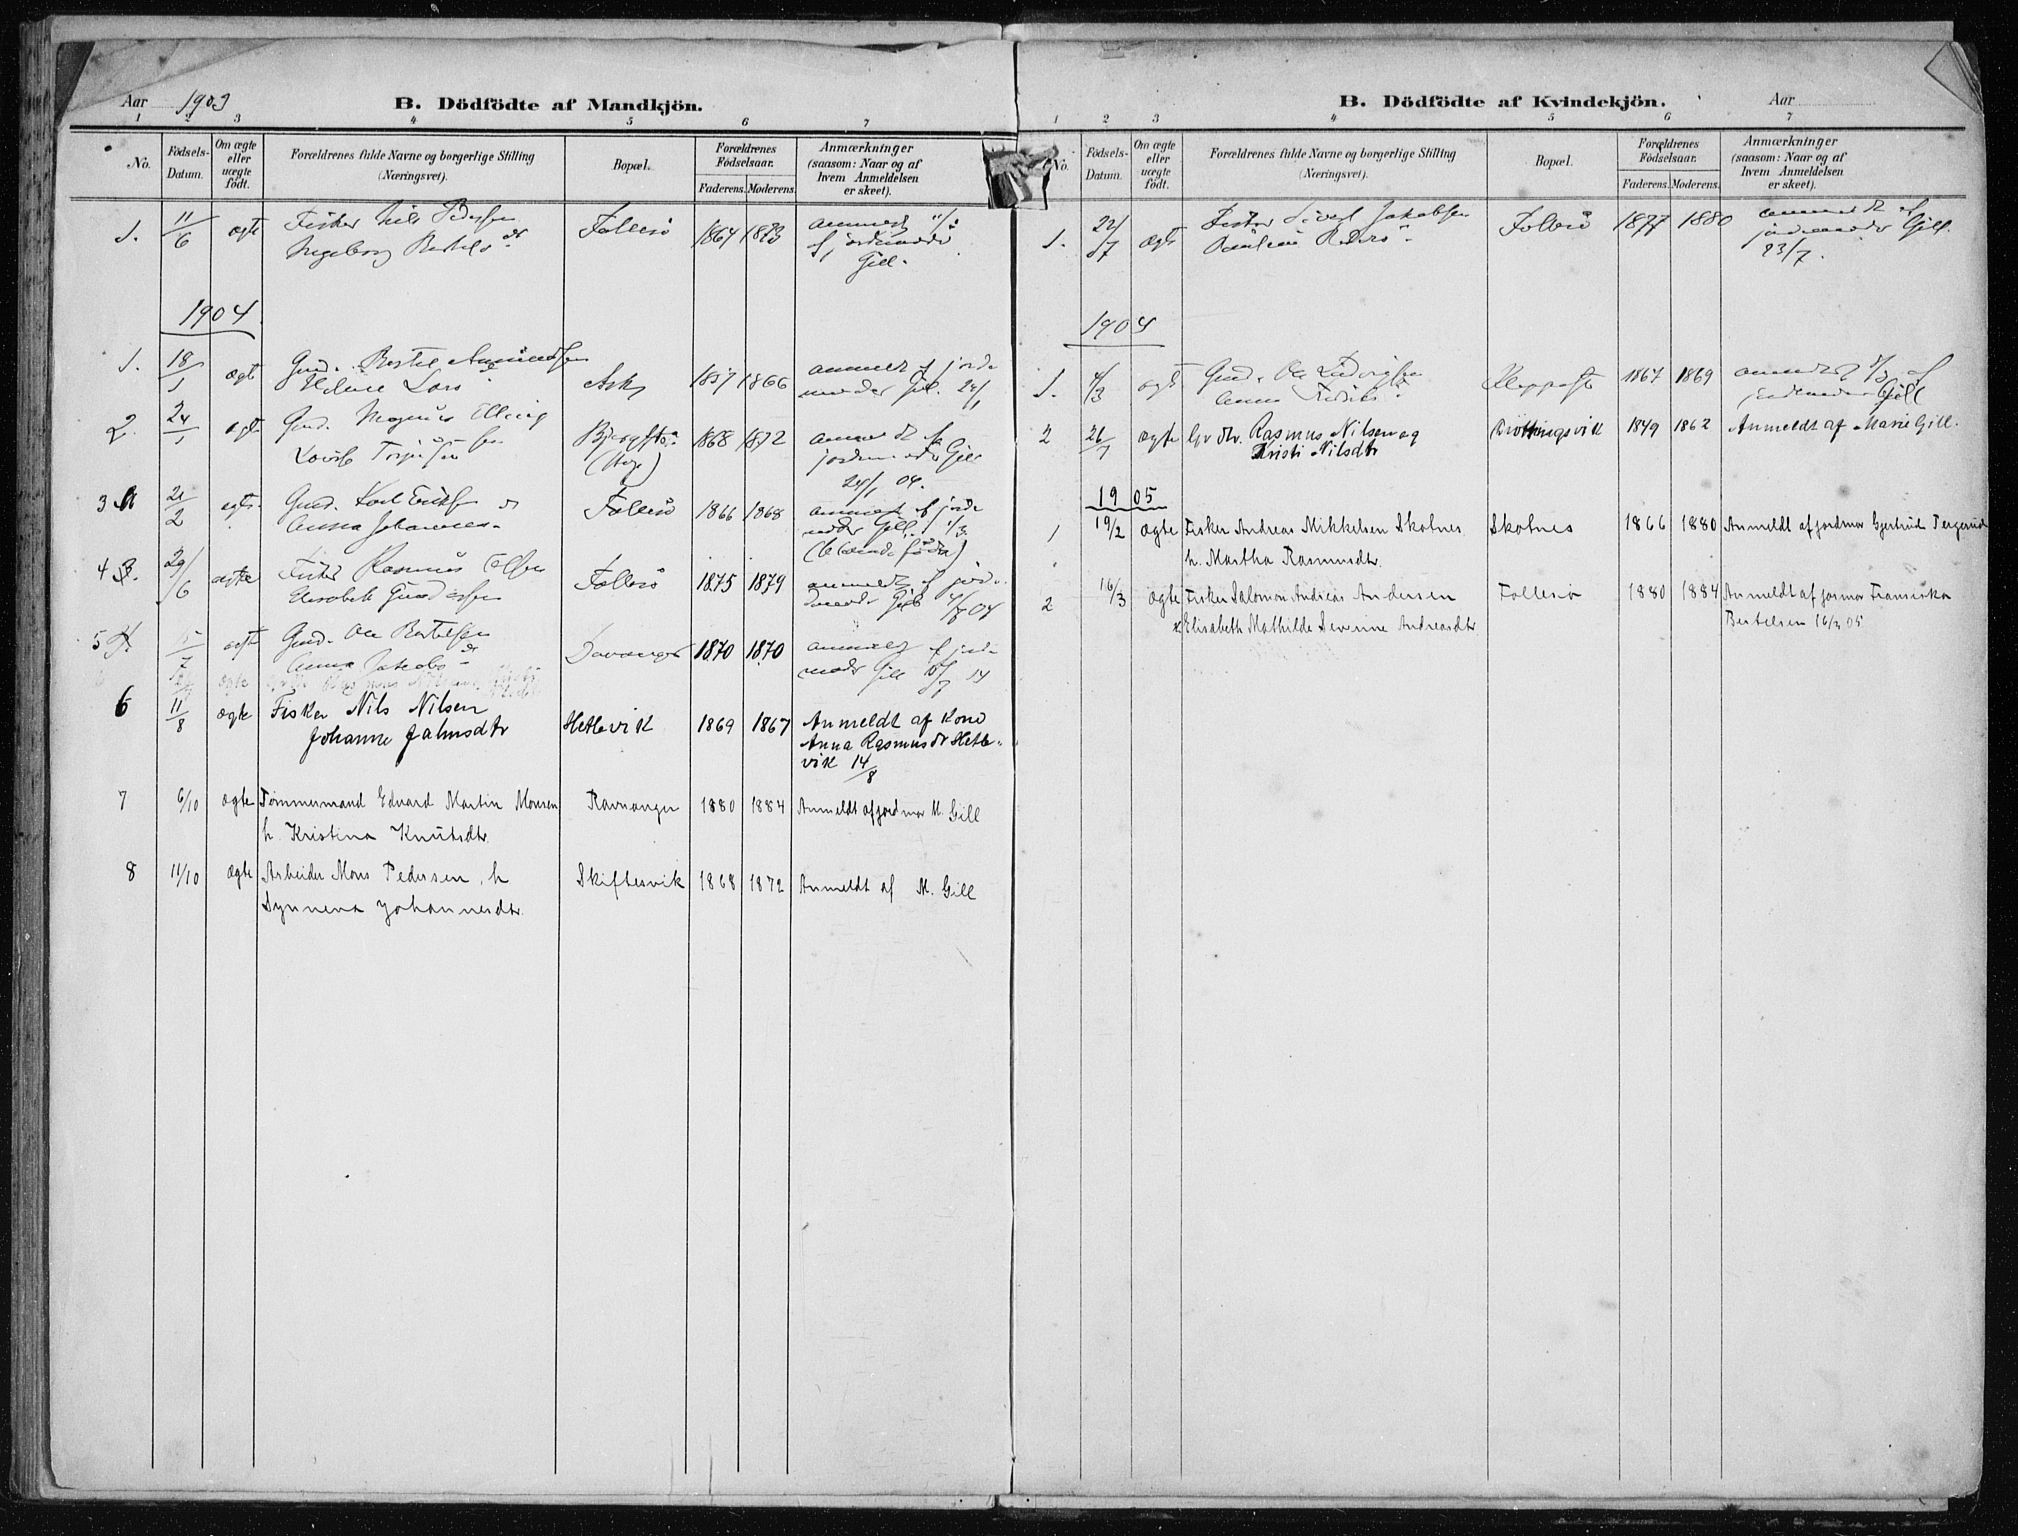 Aar 1903
B. Dödfödte af Mandkjön.
1 2 3 4 5 6 7
No.
Födsels-Datum.
Om ægte eller uægte födt.
Forældrenes fulde Navne og borgerlige Stilling (Næringsvei).
Bopæl.
Forældrenes Födselsaar.
Faderens. Moderens.
Anmærkninger (saasom: Naar og af hvem Anmeldelsen er skeet).
1. 11/6 ægte Fisker Nils Pedersen Follesö 1864 1873
Ingeborg Bertels dr
Gill.
1904.
1. 18/1 ægte Gmd. Bertel Ask 1857 1866 anmeldt af jorde
Helene Lars dr moder Gill. 24/1
2. 24/1 ægte Gmd. Magnus Elling 1868 1872 anmeldt af
sen jordemoder Gill
24/1 04.
3 21/2 ægte Gmd. Karl Eriksen Follesö 1866 1868 anmeldt af jorde
Anna Johannes dr moder Gill 1/3
4 29/6 ægte Fisker Rasmus Follesö 1875 1879 anmeldt af jorde
Elisabeth moder Gill
5 ægte Gmd. Ole Bertelsen Davanger 1870 1870 anmeldt af jorde
Anna Jakobs dr moder Gill
6 11/8 ægte Fisker Nils Nilsen Hetlevik 1869 1867 Anmeldt af Kone
Johanne Jahnsdtr Anna Rasmusdtr Hetle-
vik 14/8
7 6/10 ægte Tømmermand Edvard Martin Monsen Ravnanger 1880 1884 Anmeldt af jordmor M. Gill
h. Kristina Knutsdtr
8 11/10 ægte Arbeider Mons Pedersen, h Skiftesvik 1868 1872 Anmeldt af M. Gill
Synneva Johannesdtr.
B. Dödfödte af Kvindekjön.
Aar
1 2 3 4 5 6 7
No.
Födsels-Datum.
Om ægte eller uægte födt.
Forældrenes fulde Navne og borgerlige Stilling (Næringsvei).
Bopæl.
Forældrenes Födselsaar.
Faderens. Moderens.
Anmærkninger (saasom: Naar og af hvem Anmeldelsen er skeet).
1. 22/7 ægte Fisker Sivert Jakobsen Follesö 1877 1880 anmeldt af
jordemoder Gill
23/7.
1904
1. 4/3 ægte Gmd. Ole Ludvigsen Kleppestö 1867 1869 anmeldt af
Anna jordemoder Gill
2 26/7 ægte Rasmus Nilsen og Drotningsvik 1849 1862 Anmeldt af Marie Gill.
Kristi Nilsdtr
1905
1 10/2 ægte Fisker Andreas Mikkelsen Skotnes Skotnes 1866 1880 Anmeldt af jordmor Gjertrud
h. Martha Rasmusdtr.
2 16/3 ægte Fisker Salomon Andreas Andersen Follesø 1880 1884 Anmeldt af jormor Fransiska
Elisabeth Mathilde Severine Andreasdtr Bertelsen 16/3 05